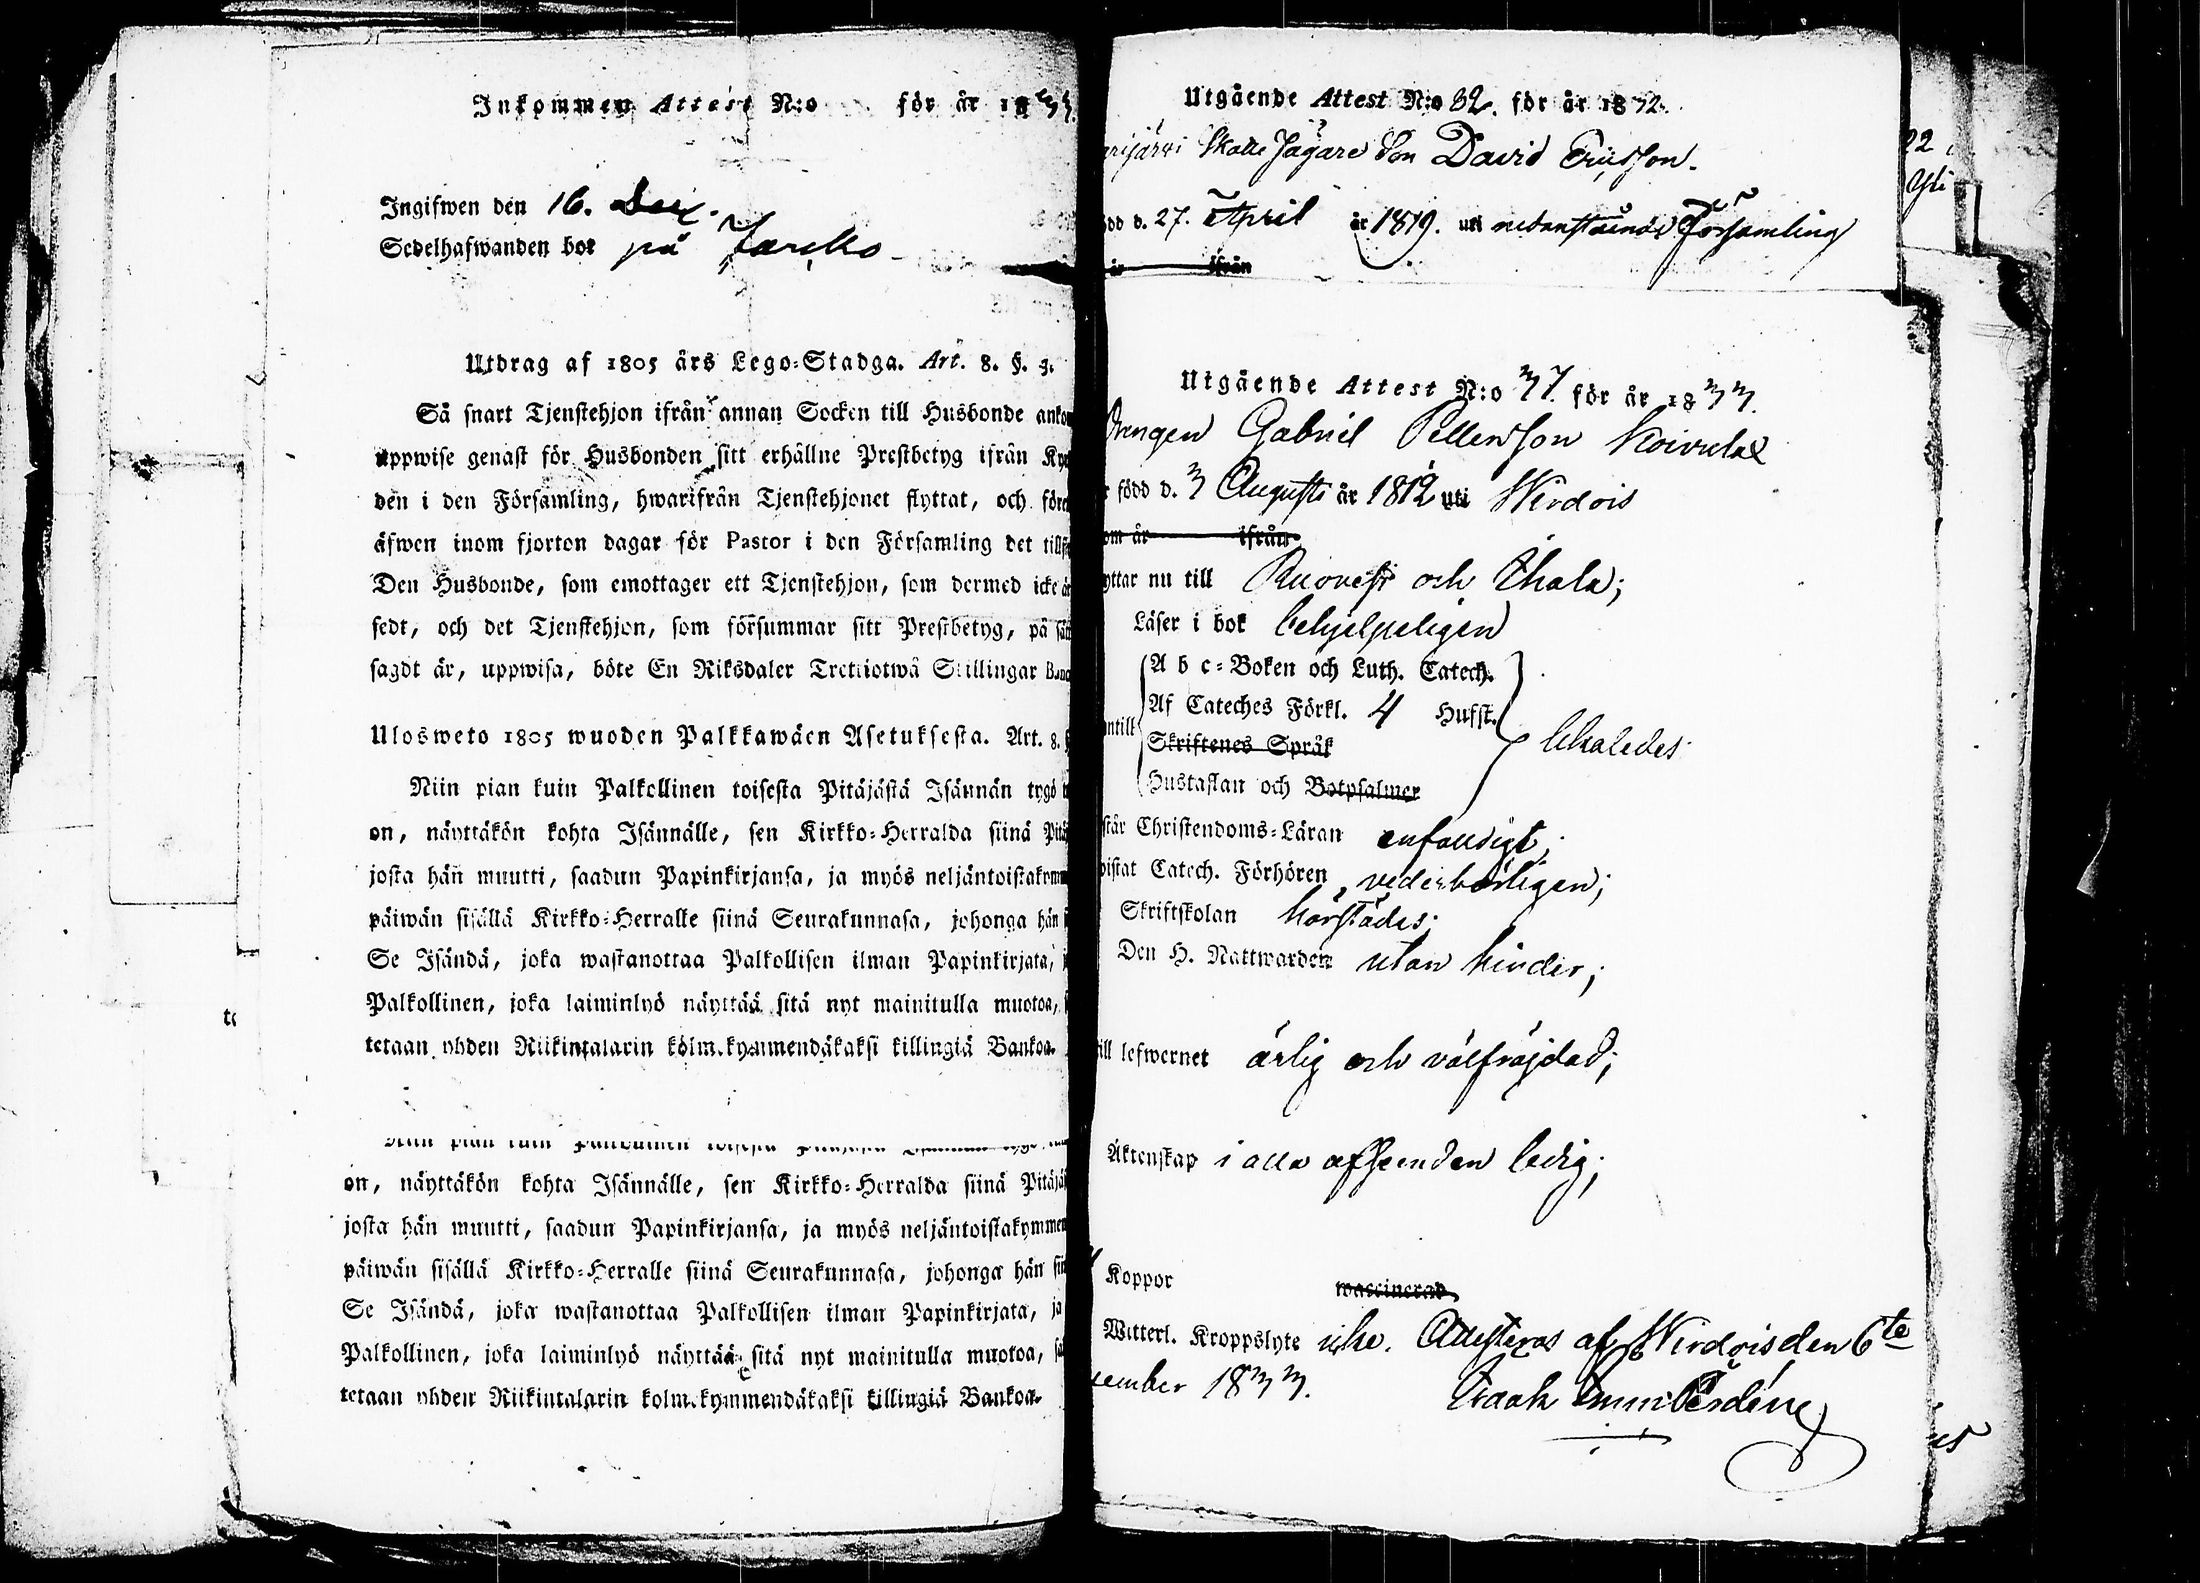 Inkommen Attest N:o för år 1833.
Ingifwen den 16. Dec.
Sedelhafwanden bor på Jarcko
Utdrag af 1805 års Lego-Stadga. Art. 8. §. 3.
Så snart Tjenstehjon ifrån annan Socken till Husbonde
uppwise genast för Husbonden sitt erhållne Prestbetyg ifrån
den i den Församling, hwarifrån Tjenstehjonet flyttat, och
äfwen inom fjorton dagar för Pastor i den Församling det
Den Husbonde, som emottager ett Tjenstehjon, som dermed icke
sedt, och det Tjenstehjon, som försummar sitt Prestbetyg, på
sagdt är, uppwisa, böte En Riksdaler Trettiotwå Skillingar
Ulosweto 1805 wuoden Palkkawäen Asetuksesta. Art. 8.
Niin pian kuin Palkollinen toisesta Pitäjästä Isännän tygö
on, näyttäkön kohta Isännälle, sen Kirkko-Herralda siinä
josta hän muutti, saadun Papinkirjansa, ja myös
päiwän sisällä Kirkko-Herralle siinä Seurakunnasa, johonga hän
Se Isändä, joka wastanottaa Palkollisen ilman Papinkirjata,
Palkollinen, joka laiminlyö näyttää sitä nyt mainitulla muotoa,
tetaan yhden Riikintalarin kolmekymmendäkaksi killingiä Bankoa.
on, näyttäkön kohta Isännälle, sen Kirkko-Herralda siinä
josta hän muutti, saadun Papinkirjansa, ja myös neljäntoistakymmen
päiwän sisällä Kirkko-Herralle siinä Seurakunnasa, johonga hän
Se Isändä, joka wastanottaa Palkollisen ilman Papinkirjata, ja
Palkollinen, joka laiminlyö näyttää sitä nyt mainitulla muotoa,
tetaan yhden Riikintalarin kolmekymmendäkaksi killingiä Bankoa.
Utgående Attest N:o 32. för år 1832.
Skatte Jägare Son David Ericsson.
d. 27. April år 1819. uti nedanstående Församling
år ifrån
Utgående Attest N:o 37. för år 1833.
Drengen Gabriel Pettersson Koivula
född d. 3 Augusti år 1812 uti Wirdois
om är ifrån
yttar nu till Ruovesi och Ihala;
Läser i bok behjelpeligen
A b c-Boken och Luth. Catech.
Af Cateches Förkl. 4 Hufst.
Skriftenes Språk
Hustaflan och Botpsalmer
likaledes
står Christendoms-Läran enfaldigt;
Catech. Förhören vederbörligen;
Skriftskolan härstädes;
Den H. Nattwarden utan hinder;
till lefwernet ärlig och välfräjdad;
Äktenskap i alla afseenden ledig;
Koppor waccinerad
Witterl. Kroppslyte icke. Attesteras af Wirdois den 6te
cember 1833.
Isaak Imm: Perdén
22